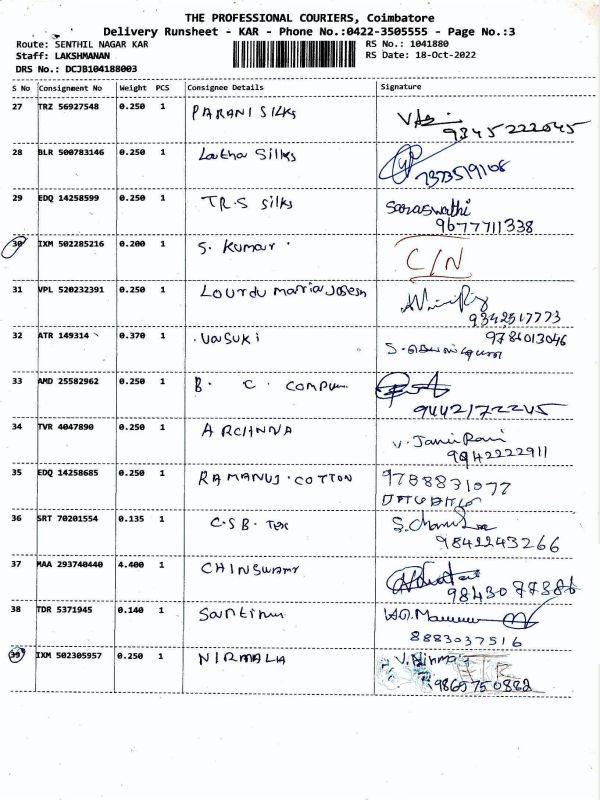 THE PROFESSIONAL COURIERS, Coimbatore
Delivery Runsheet - KAR - Phone No.:0422-3505555 - Page No.:3
Route: SENTHIL NAGAR KAR
RS No.: 1041880
Staff: LAKSHMANAN
RS Date: 18-Oct-2022
DRS No.: DCJB104188003
S No Consignment No Weight PCS Consignee Details Signature
27 TRZ 56927548 0.250 1 PARANI SILKS
9845222045
28 BLR 500783146 0.250 1 Latha Silks
7373519108
29 EDQ 14258599 0.250 1 T.R.S Silks Saraswathi
9677711338
30 IXM 502285216 0.200 1 S. Kumar C/N
31 VPL 520232391 0.250 1 Lourdu Maria Joseph
9342517773
32 ATR 149314 0.370 1 Vasuki 9786013046
33 AMD 25582962 0.250 1 B. C. COMPUM
9442172245
34 TVR 4047890 0.250 1 ARCHNNA V. Jansi Rani
9842222911
35 EDQ 14258685 0.250 1 RAMANUJ. COTTON 9788831077
36 SRT 70201554 0.135 1 C.S.B. Tex
9842243266
37 MAA 293740440 4.400 1 CHINSWAMY
9843087386
38 TDR 5371945 0.140 1
8883037516
39 IXM 502305957 0.250 1 NIRMALA V. Nirmala
9865750882